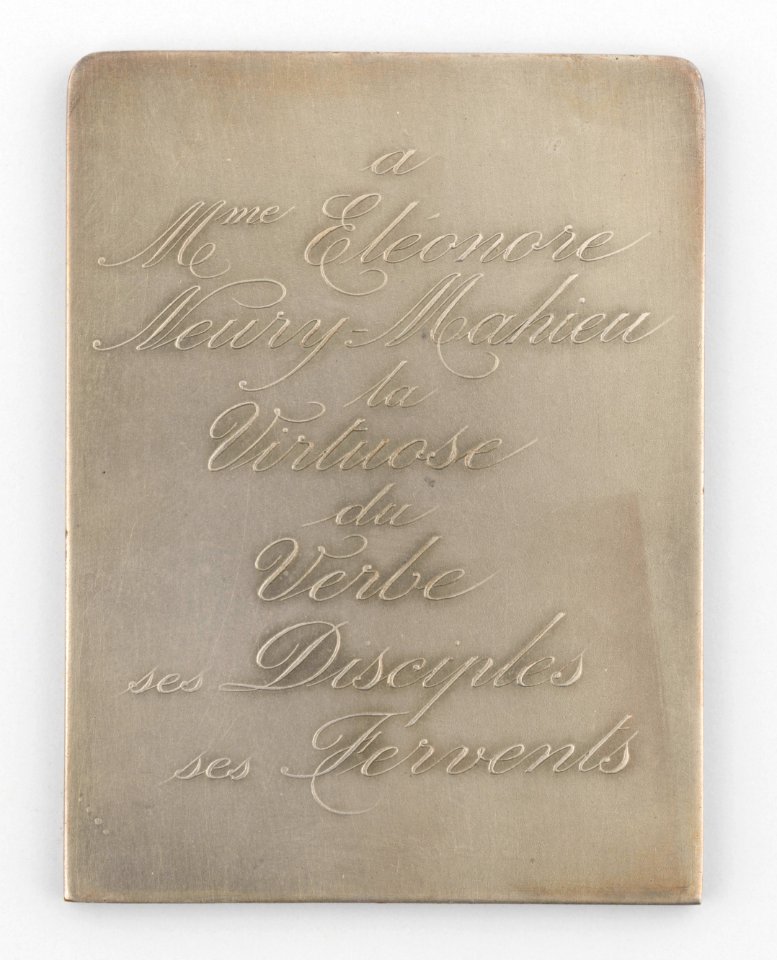 a
Mme Eléonore
Neury-Mahieu
la
Virtuose
du
Verbe
ses Disciples
ses Fervents